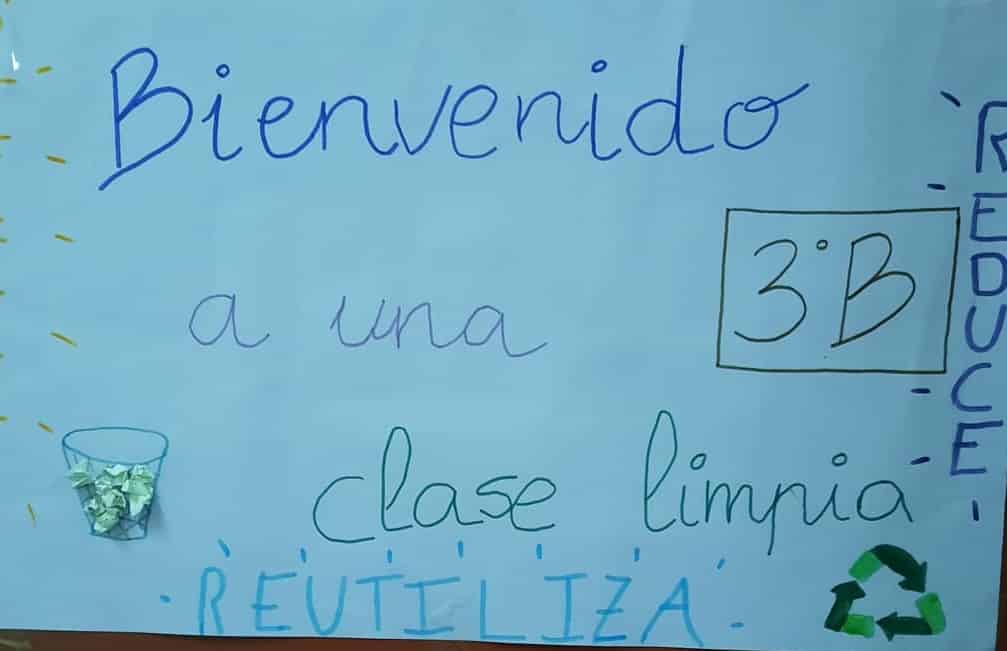 Bienvenido
a una
3°B
clase limpia
REUTILIZA
REDUCE